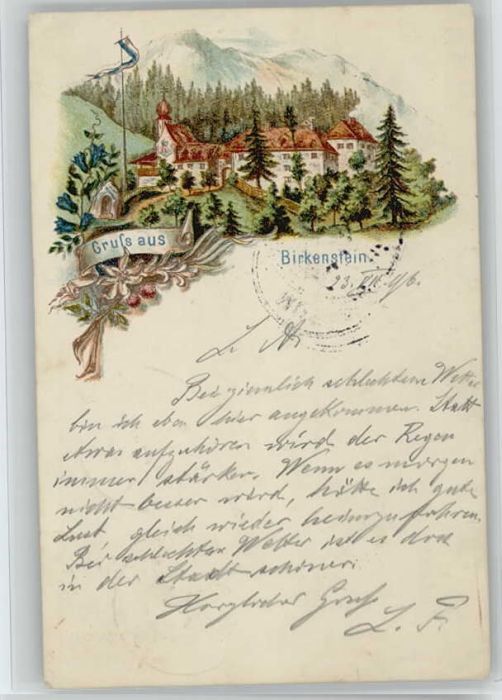 Gruſs aus
Birkenstein.
23. VII. 96.
L. A.
Bei ziemlich schlechtem Wetter
bin ich eben hier angekommen. Statt
etwas aufzuhören wird der Regen
immer stärker. Wenn es morgen
nicht besser wird, hätte ich gute
Lust gleich wieder heimzufahren.
Bei schlechten Wetter ist es doch
in der Stadt schöner.
Herzlicher Gruß
L. F.